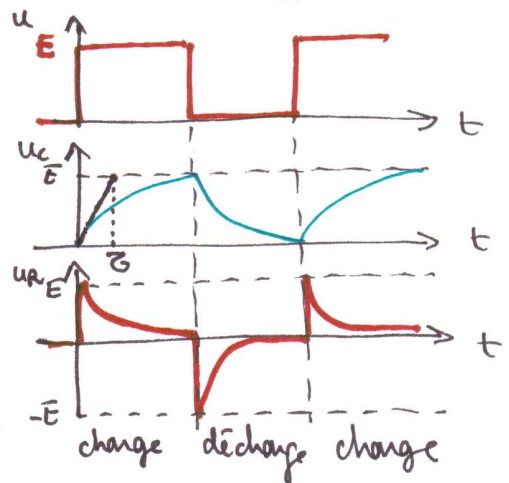 u
E
t
uc
E
τ
t
uR
E
t
-E
charge décharge charge